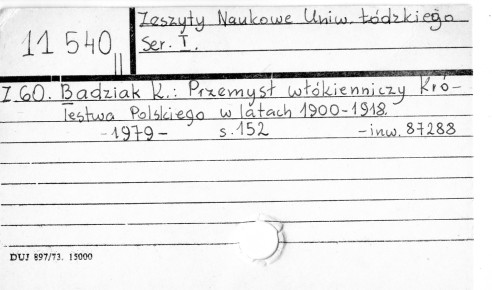 11 540 II
Zeszyty Naukowe Uniw. Łódzkiego
Ser. I.
Z.60. Badziak K.: Przemysł włókienniczy Kró-
lestwa Polskiego w latach 1900-1918.
-1979- s.152 -inw. 87288
DUJ 897/73. 15000